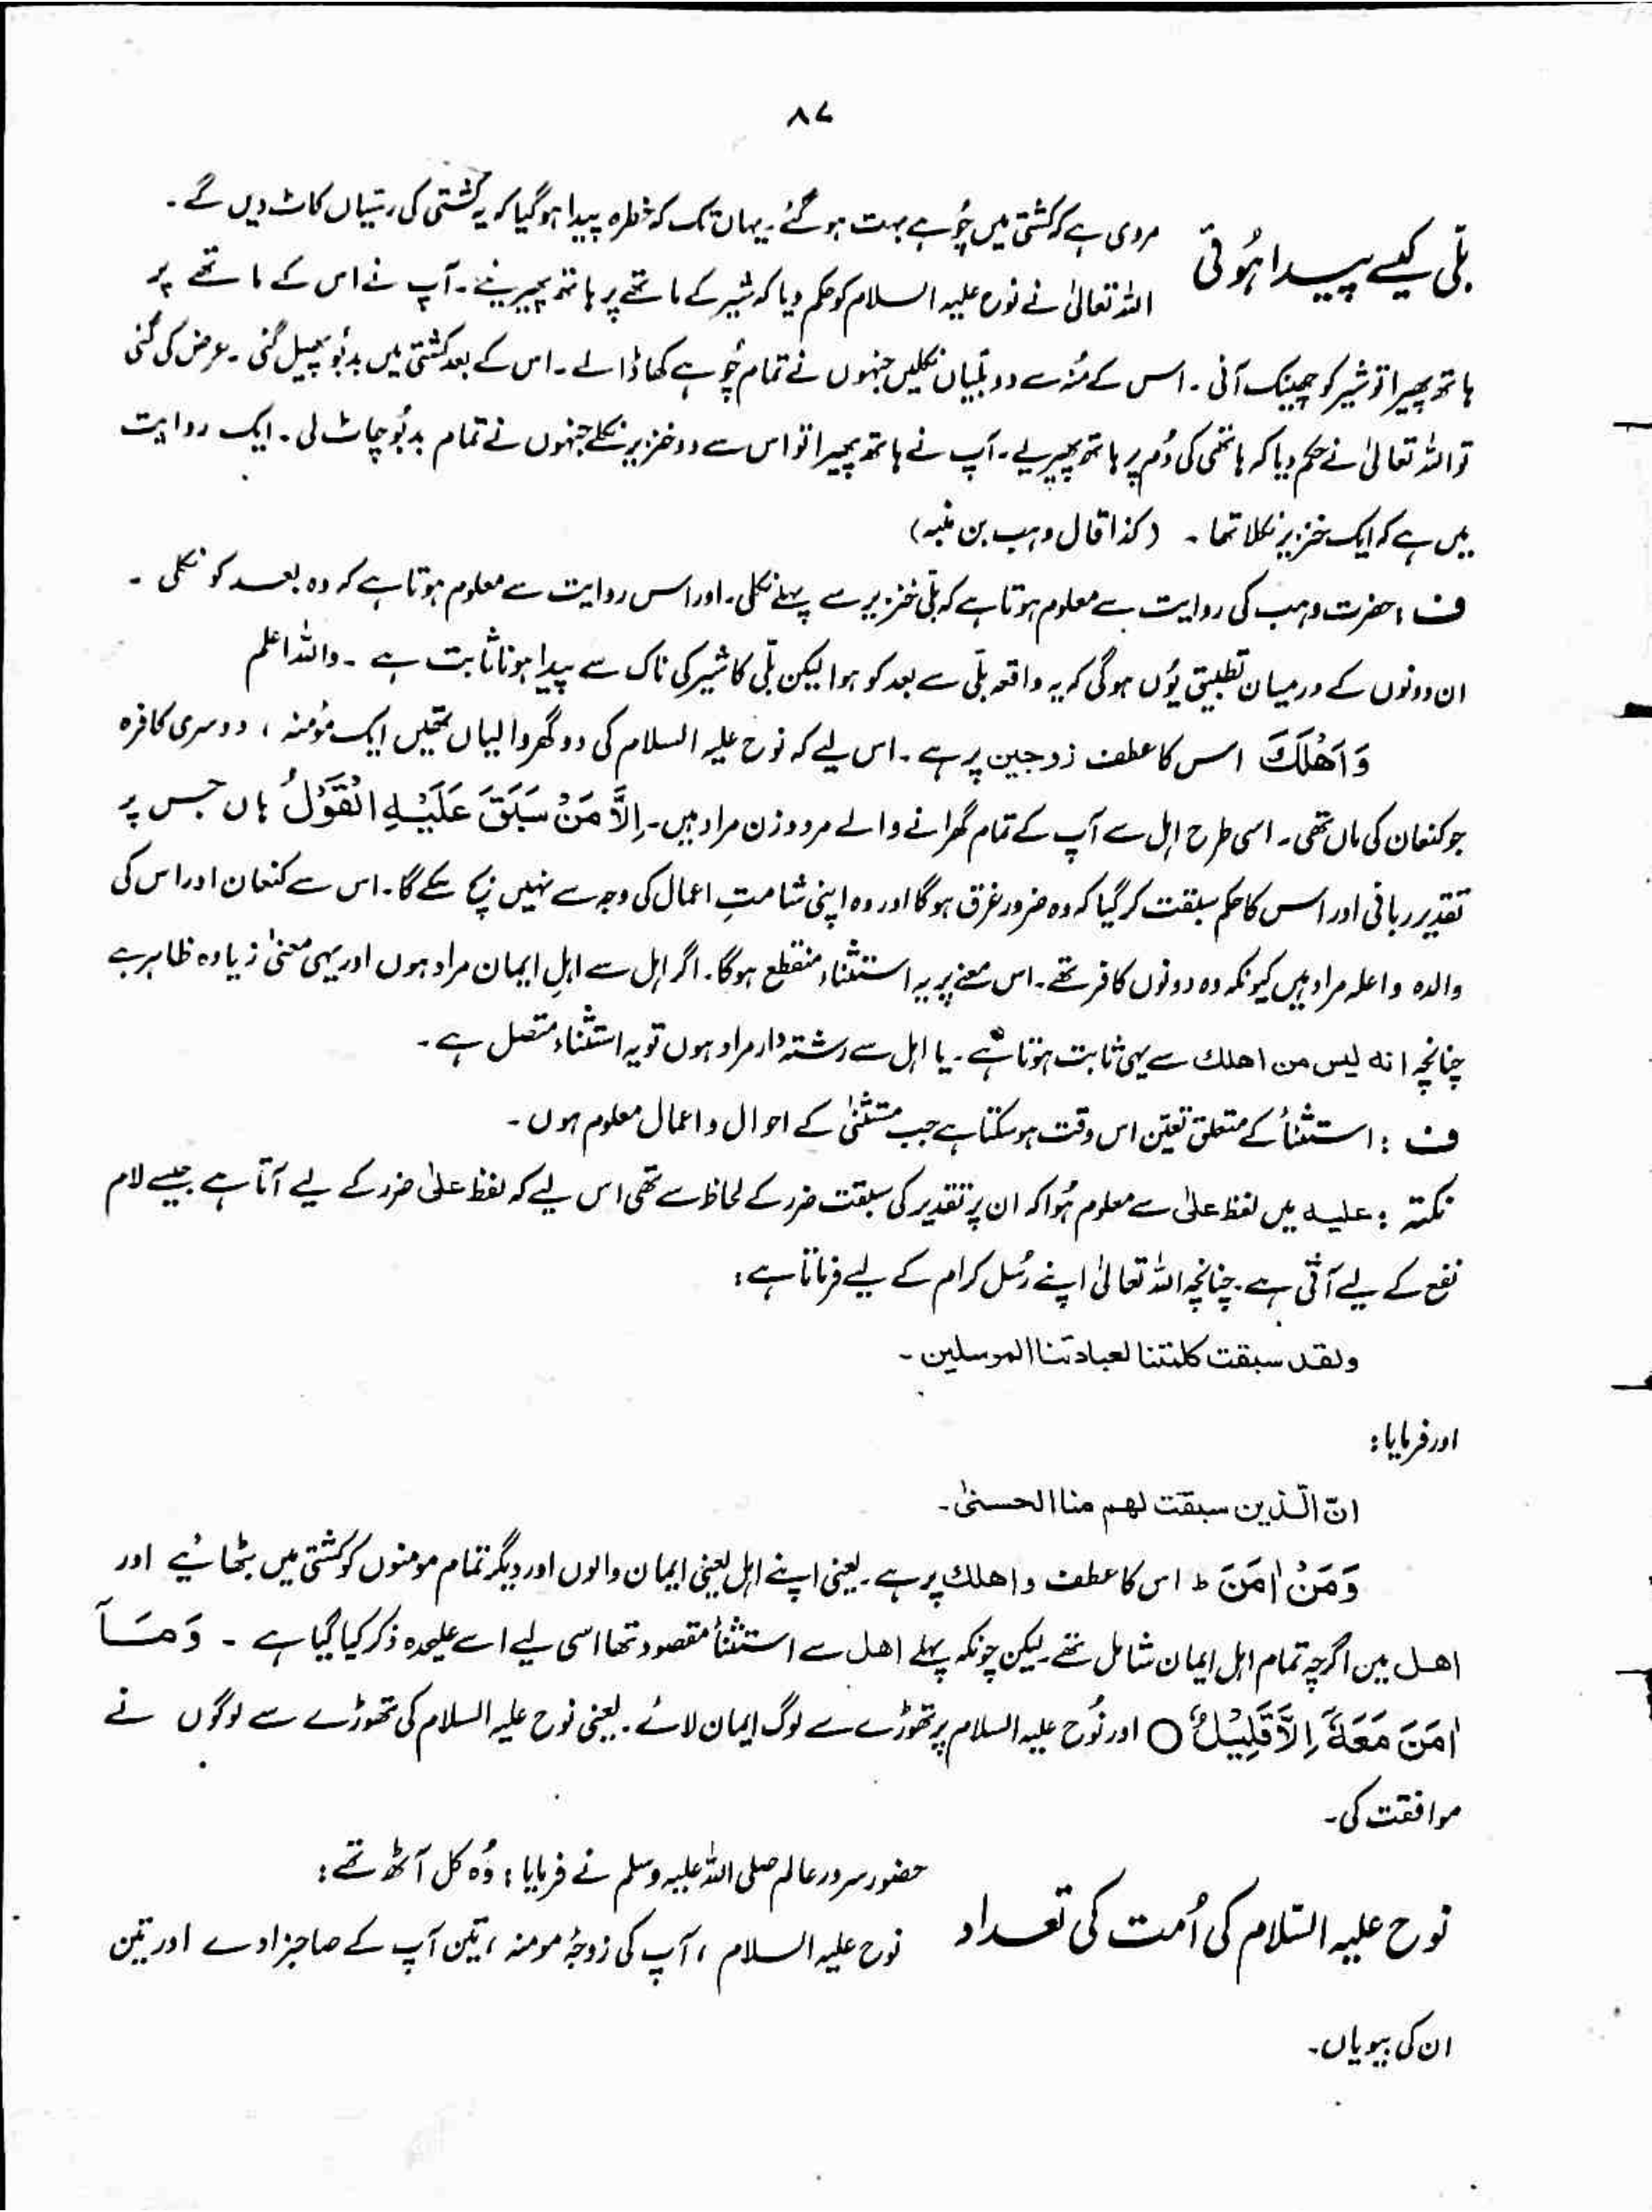 ۸۷
بلّی کیسے پیدا ہُوئی
مروی ہے کہ کشتی میں چُوہے بہت ہو گئے۔ یہاں تک کہ خطرہ پیدا ہو گیا کہ یہ کشتی کی رسّیاں کاٹ دیں گے۔
اللہ تعالیٰ نے نوح علیہ السلام کو حکم دیا کہ شیر کے ماتھے پر ہاتھ پھیریئے۔ آپ نے اس کے ماتھے پر
ہاتھ پھیرا تو شیر کو چھینک آئی۔ اس کے مُنہ سے دو بلّیاں نکلیں جنہوں نے تمام چُوہے کھا ڈالے۔ اس کے بعد کشتی میں بدبُو پھیل گئی۔ عرض کی گئی
تو اللہ تعالیٰ نے حکم دیا کہ ہاتھی کی دُم پر ہاتھ پھیریے۔ آپ نے ہاتھ پھیرا تو اس سے دو خنزیر نکلے جنہوں نے تمام بدبُو چاٹ لی۔ ایک روایت
میں ہے کہ ایک خنزیر نکلا تھا۔ (کذا قال وہب بن منبہ)
ف : حضرت وہب کی روایت سے معلوم ہوتا ہے کہ بلّی خنزیر سے پہلے نکلی۔ اور اس روایت سے معلوم ہوتا ہے کہ وہ بعد کو نکلی۔
ان دونوں کے درمیان تطبیق یُوں ہو گی کہ یہ واقعہ بلّی سے بعد کو ہوا لیکن بلّی کا شیر کی ناک سے پیدا ہونا ثابت ہے۔ واللہ اعلم
وَاَهْلَكَ اس کا عطف زوجین پر ہے۔ اس لیے کہ نوح علیہ السلام کی دو گھر والیاں تھیں ایک مؤمنہ ، دوسری کافرہ
جو کنعان کی ماں تھی۔ اسی طرح اہل سے آپ کے تمام گھرانے والے مرد و زن مراد ہیں۔ اِلَّا مَنْ سَبَقَ عَلَيْهِ الْقَوْلُ ہاں جس پر
تقدیر ربانی اور اس کا حکم سبقت کر گیا کہ وہ ضرور غرق ہو گا اور وہ اپنی شامتِ اعمال کی وجہ سے نہیں بچ سکے گا۔ اس سے کنعان اور اس کی
والدہ واعلہ مراد ہیں کیونکہ وہ دونوں کافر تھے۔ اس معنے پر یہ استثناء منقطع ہو گا۔ اگر اہل سے اہلِ ایمان مراد ہوں اور یہی معنیٰ زیادہ ظاہر ہے
چنانچہ انه ليس من اهلك سے یہی ثابت ہوتا ہے۔ یا اہل سے رشتہ دار مراد ہوں تو یہ استثناء متصل ہے۔
ف : استثنأ کے متعلق تعیّن اس وقت ہو سکتا ہے جب مستثنیٰ کے احوال و اعمال معلوم ہوں۔
نکتہ : علیہ میں لفظ علیٰ سے معلوم ہُوا کہ ان پر تقدیر کی سبقت ضرر کے لحاظ سے تھی اس لیے کہ لفظ علیٰ ضرر کے لیے آتا ہے جیسے لام
نفع کے لیے آتی ہے۔ چنانچہ اللہ تعالیٰ اپنے رُسل کرام کے لیے فرماتا ہے:
ولقد سبقت كلمتنا لعبادتنا المرسلين۔
اور فرمایا:
انّ الّذين سبقت لهم منا الحسنىٰ۔
وَمَنْ اٰمَنَ ط اس کا عطف واهلك پر ہے۔ یعنی اپنے اہل یعنی ایمان والوں اور دیگر تمام مومنوں کو کشتی میں بٹھائیے اور
اھل میں اگرچہ تمام اہل ایمان شامل تھے لیکن چونکہ پہلے اھل سے استثنأ مقصود تھا اسی لیے اسے علیحدہ ذکر کیا گیا ہے۔ وَمَآ
اٰمَنَ مَعَهٗٓ اِلَّا قَلِيْلٌ ○ اور نُوح علیہ السلام پر تھوڑے سے لوگ ایمان لائے۔ یعنی نوح علیہ السلام کی تھوڑے سے لوگوں نے
موافقت کی۔
نوح علیہ السّلام کی اُمت کی تعداد
حضور سرورِ عالم صلی اللہ علیہ وسلم نے فرمایا : وُہ کل آٹھ تھے:
نوح علیہ السلام ، آپ کی زوجۂ مومنہ ، تین آپ کے صاحبزادے اور تین
ان کی بیویاں۔